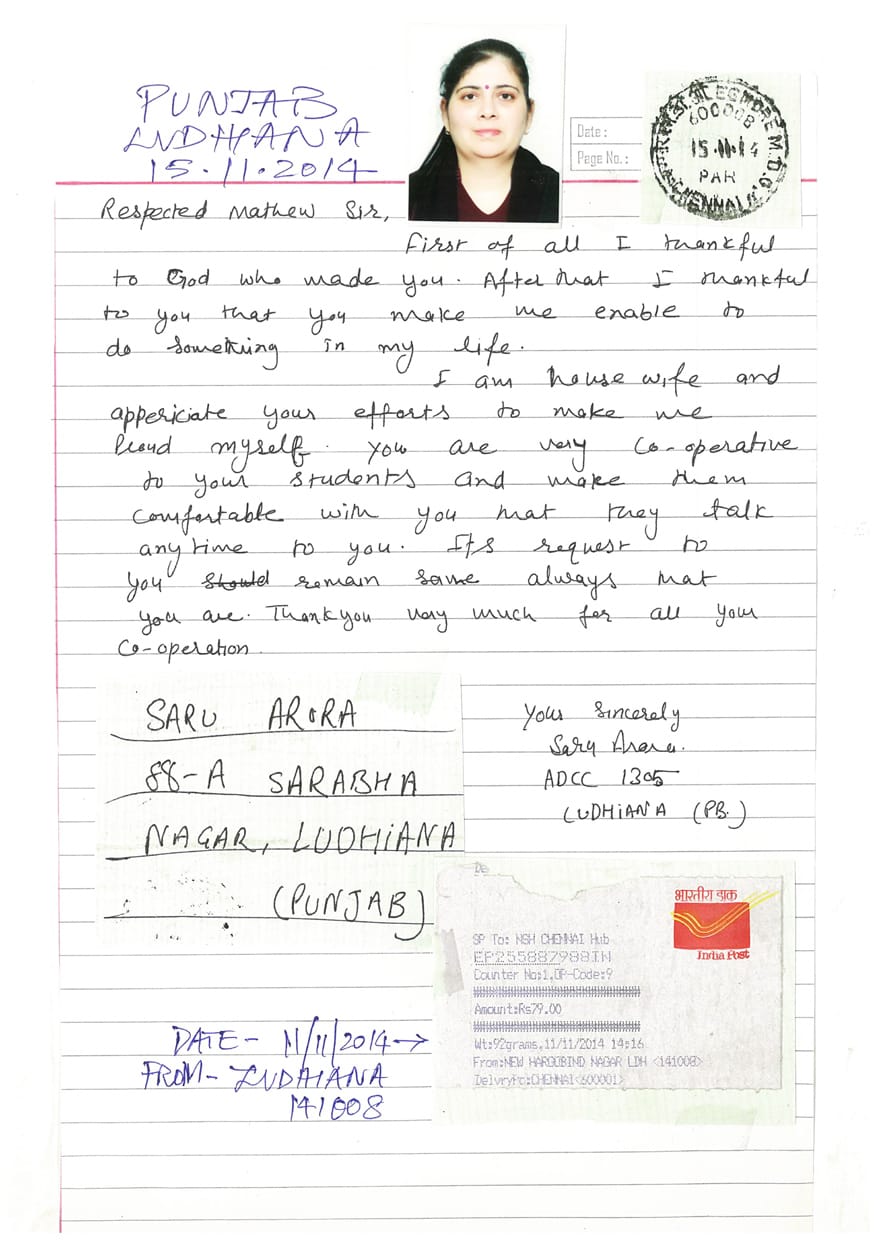 PUNJAB
LUDHIANA
15.11.2014
Date:
Page No.:
EGMORE M.D.O.
600008
15.11.14
PAR
CHENNAI
Respected Mathew Sir,
First of all I thankful
to God who made you. After that I thankful
to you that you make me enable to
do something in my life.
I am house wife and
appericiate your efforts to make me
Proud myself. You are very Co-operative
to your students and make them
comfortable with you that they talk
anytime to you. Its request to
you should remain same always that
you are. Thankyou very much for all your
Co-operation.
SARU ARORA
88-A SARABHA
NAGAR, LUDHIANA
(PUNJAB)
Your Sincerely
Saru Arora.
ADCC 1305
LUDHIANA (PB.)
भारतीय डाक
India Post
SP To: NSH CHENNAI Hub
EP255887988IN
Counter No:1,OP-Code:9
Amount:Rs79.00
Wt:92grams,11/11/2014 14:16
From:NEW HARGOBIND NAGAR LDH <141008>
Delvryto:CHENNAI<600001>
DATE - 11/11/2014 →
FROM - LUDHIANA
141008